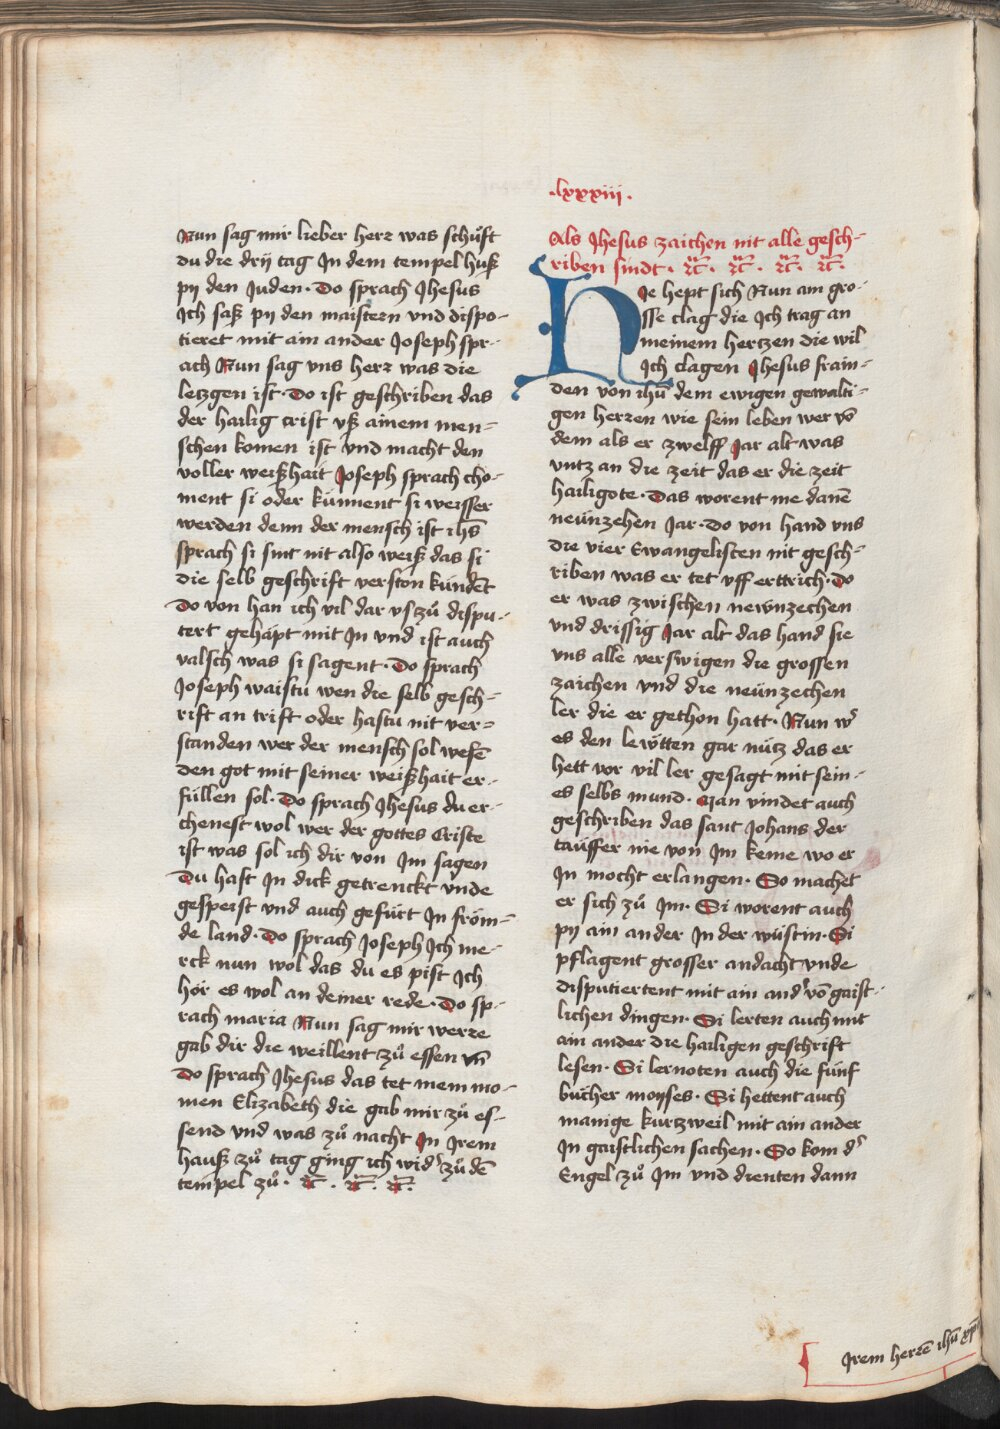 Nun sag mir lieber herr was schuͦft
du die drÿ tag In dem tempel huß
pÿ den Juden · Do sprach Jhesus
Ich saß pÿ den maistern vnd dispo-
tieret mit ain ander Joseph spr-
ach Nun sag vns herr was die
letzgen ist · Do ist geschriben das
der hailig crist vß ainem men-
schen komen ist vnd macht den
voller weißhait Joseph sprach cho-
ment si oder kùnnent si weisser
werden denn der mensch ist ihs̄
sprach si sint nit also weiß das si
die selb geschrift verston kùndēt
Do von han ich vil dar vſ zuͦ dispu-
tert gehäpt mit In vnd ist auch
valsch was si sagent · Do sprach
Joseph waistu wen die selb gesch-
rift an trift oder hastu nit ver-
standen wer der mensch sol wesē
den got mit seiner weißhait er-
füllen sol · Do sprach Jhesus du er-
chenest wol wer der gottes Criste
ist was sol ich dir von Im sagen
Du hast In dick getrenckt vnde
gespeist vnd auch gefürt In fröm-
de land · Do sprach Joseph Ich me-
rck nun wol das du es pist Ich
hör es wol an deiner rede · Do sp-
rach maria Nun sag mir werre
gab dir die weillent zuͦ essen vn̄
Do sprach Jhesus das tet mem mo-
men Elizabeth die gab mir zuͦ es-
send vnd was zuͦ nacht In Jrem
hauß zuͦ tag ging ich wid' zuͦ dē
tempel zuͦ · ꝛc̄ · ꝛc̄ · ꝛc̄ ·
· lxxxiii ·
Als Jhesus zaichen nit alle gesch-
riben sindt · ꝛc̄ · ꝛc̄ · ꝛc̄ · ꝛc̄ ·
HIe hept sich Nun am gro-
sse clag die Ich trag an
meinem hertzen die wil
Ich clagen Jhesus frain-
den von ihū dem ewigen gewalti-
gen herren wie sein leben wer vō
dem als er zwelff Jar alt was
vntz an die zeit das er die zeit
hailigote · Das worent me danē
neünzehen Jar · Do von hand vns
die vier Ewangelisten nit gesch-
riben was er tet vff ertrich · Do
er was zwischen newnzechen
vnd drissig Jar alt das hand sie
vns alle verswigen die grossen
zaichen vnd die neünzechen
ler die er gethon hatt · Nun w'
es den lewtten gar nutz das er
hett vor vil ler gesagt mit sein-
es selbs mund · Man vindet auch
geschriben das sant Johans der
täuffer nie von Im keme wo er
In mocht erlangen · So machet
er sich zuͦ Im · Si worent auch
pÿ ain ander In der wüstin · Si
pflagent grosser andacht vnde
disputiertent mit ain and' vō gaist-
lichen dingen · Si lerten auch mit
ain ander die hailigen geschrift
lesen · Si lernoten auch die fünf
bücher moyses · Si hettent auch
manige kurzweil mit ain ander
In gaistlichen sachen · So kom d'
Engel zuͦ Im vnd dienten dann
Jrem herrē ihū xp̄i